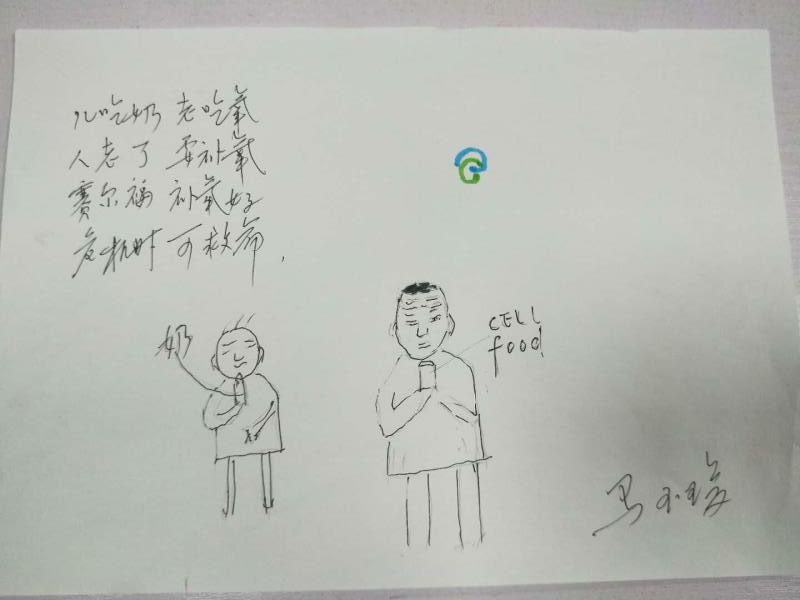 儿吃奶 老吃氧
人老了 要补氧
赛尔福 补氧好
危机时 可救命.
奶
CELL
food